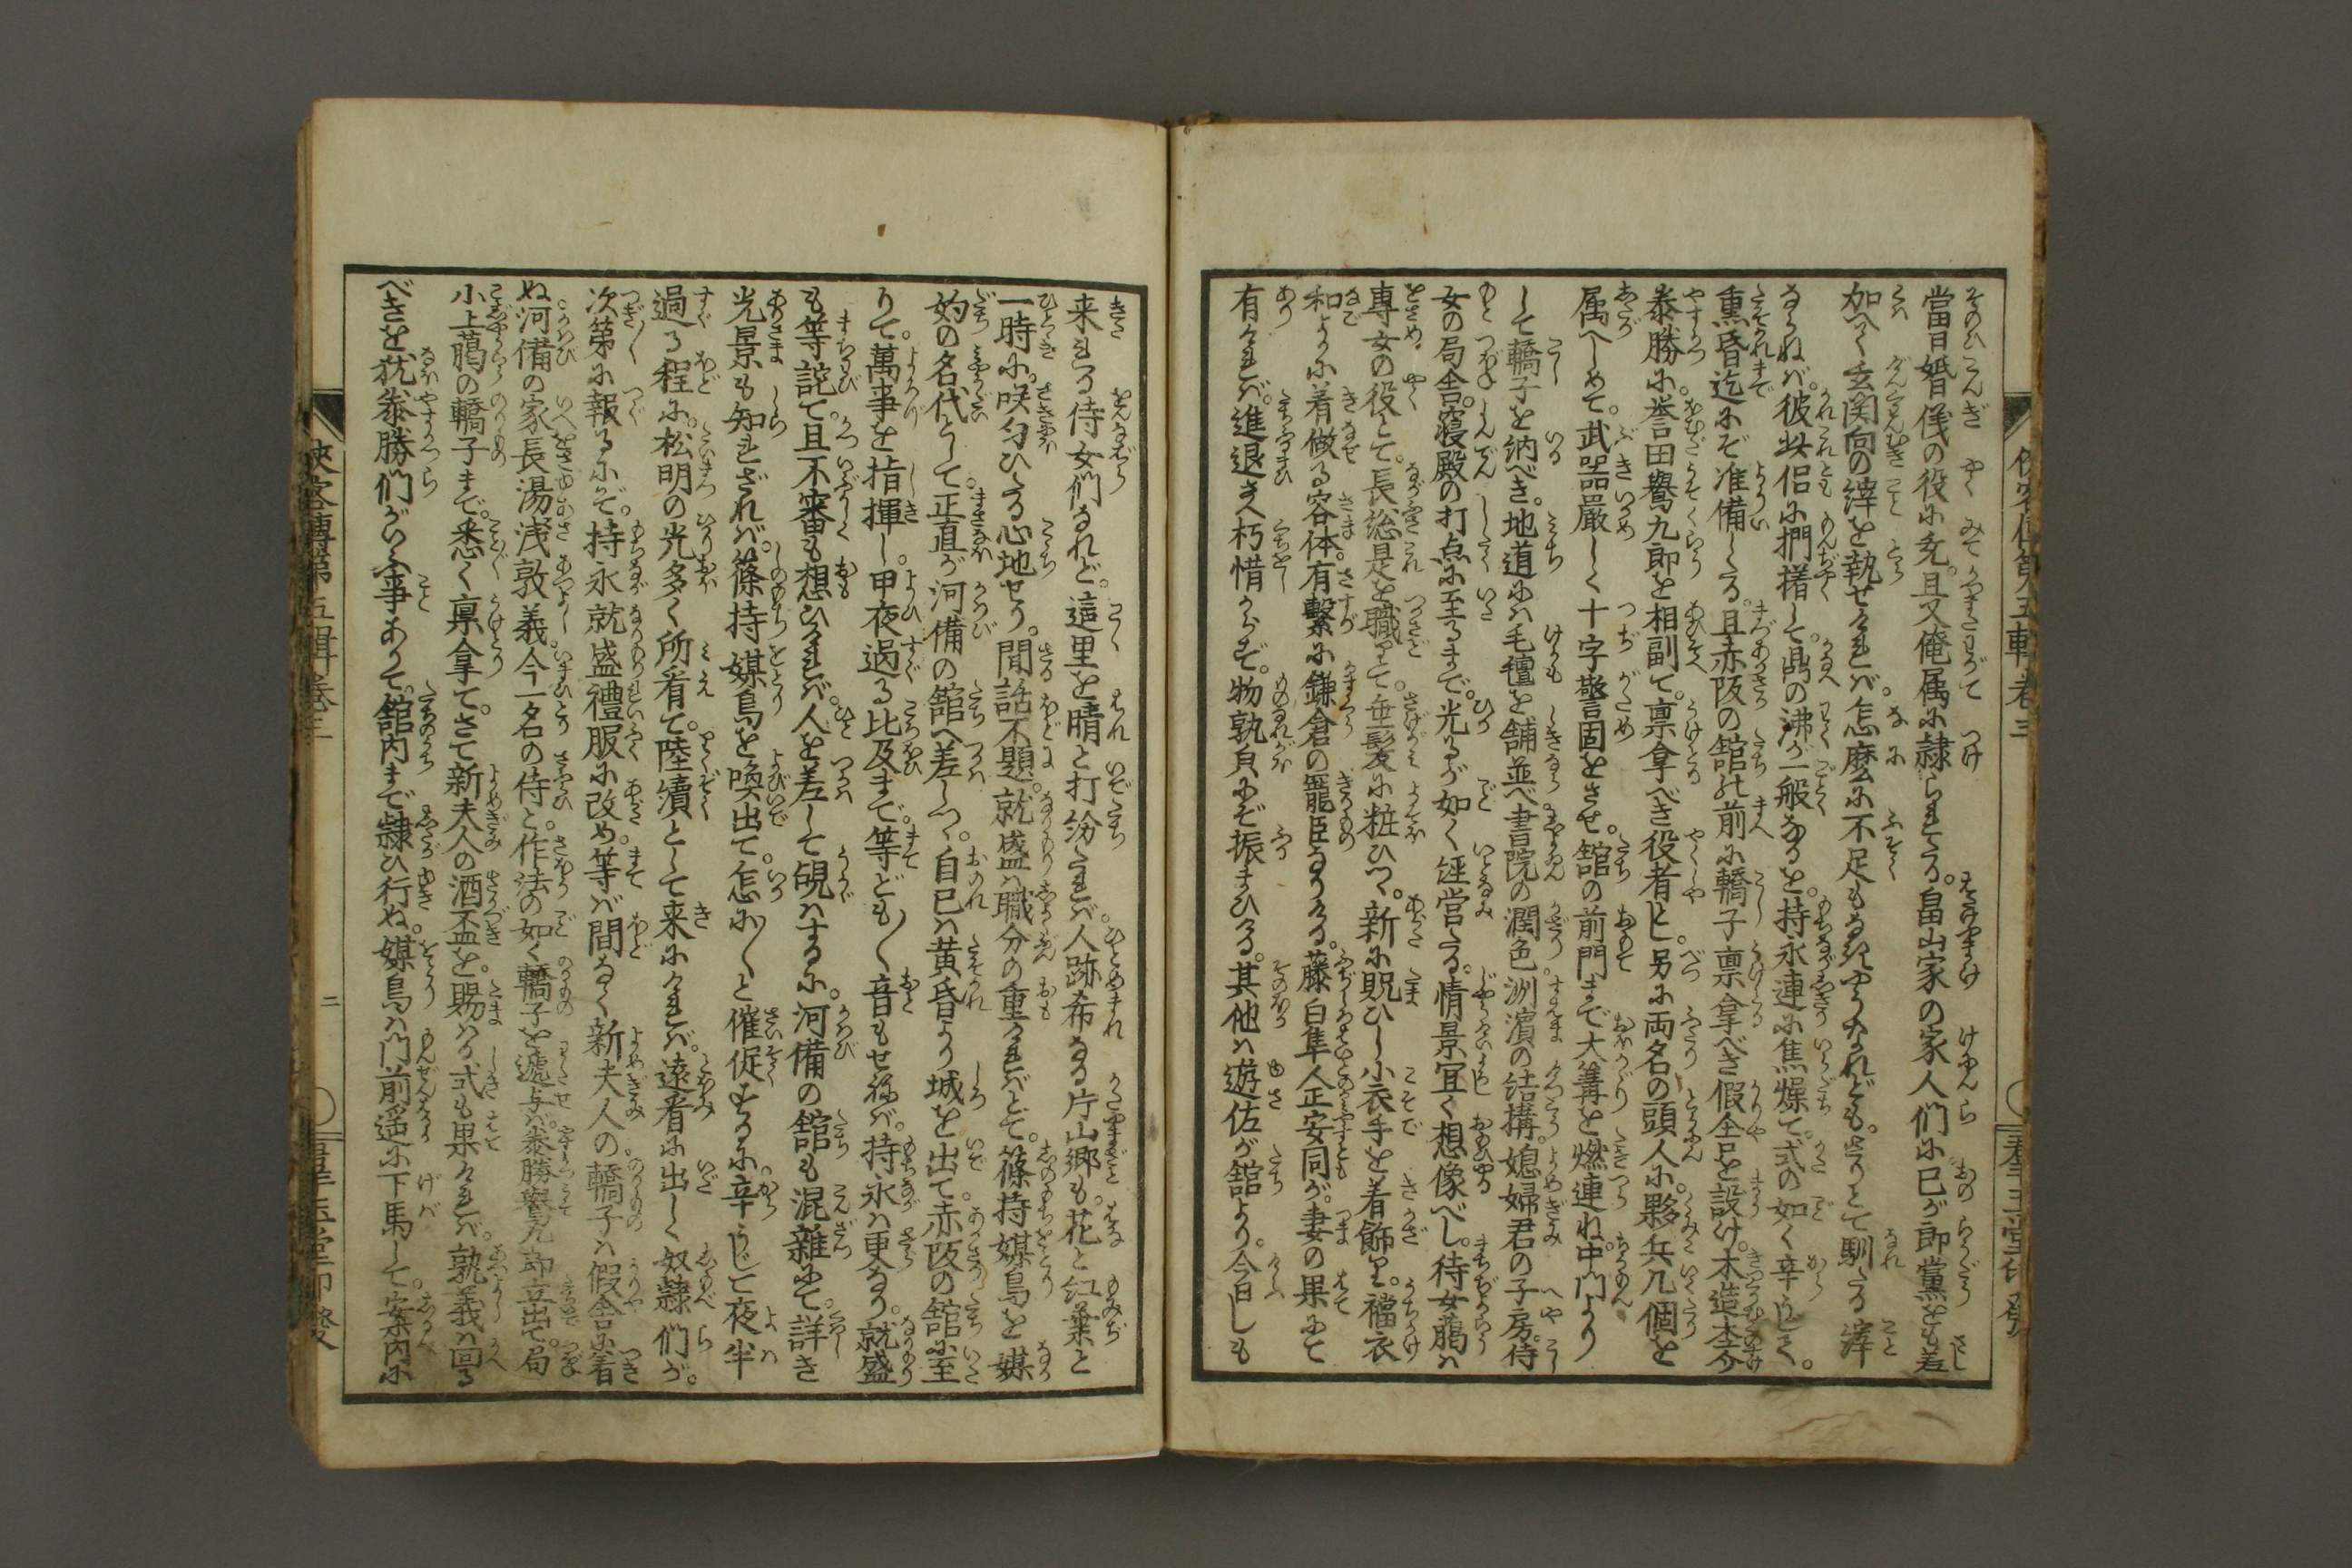 當日婚儀の役に充。且又俺属に隷られたる。畠山家の家人們に己が郎黨をも差
加へて玄関向の縡を執せければ。怎麼に不足もなきやうなれども。さりとて馴たる縡
ならねば。彼此侶に捫搔して。鼎の沸が一般なるを。持永連に焦燥て。式の如く辛うじて。
熏昏迄にぞ准備したる。且赤阪の舘の前に轎子禀拿べき假舎を設け。木造杢介
泰勝に。譽田鸎九郎を相副て。禀拿べき役者とし。另に両名の頭人に夥兵几個を
属へしめて。武噐嚴しく十字警固をさせ。舘の前門まで大篝を燃連ね。中門より
して轎子を納べき。地道には毛氊を舗並べ書院の潤色。洲濱の結構。媳婦君の子房。侍
女の局舎。寝殿の打点に至るまで。光るが如く経営たる。情景冝く想像べし。待女﨟は
專女の役とて。長総是を職りて。垂髪に粧ひつゝ。新に貺ひし小衣手を着飾り。襠衣
和よかに着做る容体。有繫に鎌倉の寵臣なりける。藤白隼人正安同が。妻の果にて
有ければ。進退さへ朽惜からず。物孰貞にぞ振まひける。其他は遊佐が舘より。今日しも
来ける侍女們なれど。這里を晴と打紛たれば。人跡希なる片山郷も。花と紅葉と
一時に。咲匂ひたる心地せり。間話不題。就盛は職分の重ければとて。篠持媒鳥を媒
妁の名代として。正直が河備の舘へ差しつ。自己は黄昏より城を出て。赤阪の舘に至
りて。萬事を指揮し。甲夜過る比及まで。等ども〱音もせねば。持永は更なり。就盛
も等詫て。且不審も想ひければ。人を差して覘はするに。河備の舘も混雑にて。詳き
光景も知れざれば。篠持媒鳥を喚出て。怎に〱と催促するに。辛うじて夜半
過る程に。松明の光多く所看て。陸續として来にければ。遠看に出しく奴隷們が。
次第に報るにぞ。持永就盛禮服に改め。等ば間なく新夫人の。轎子は假舎に着
ぬ河備の家長湯浅敦義。今一名の侍と。作法の如く轎子を遞与ば。泰勝鸎九郎立出て。局
小上﨟の轎子まで。悉く禀拿て。さて新夫人の酒盃を。賜はる式も果ければ。敦義は回る
べきを。犹泰勝們がいふ事ありて。舘内まで隷ひ行ぬ。媒鳥は門前遥に下馬して。案内に
侠客傳第五輯卷三
二